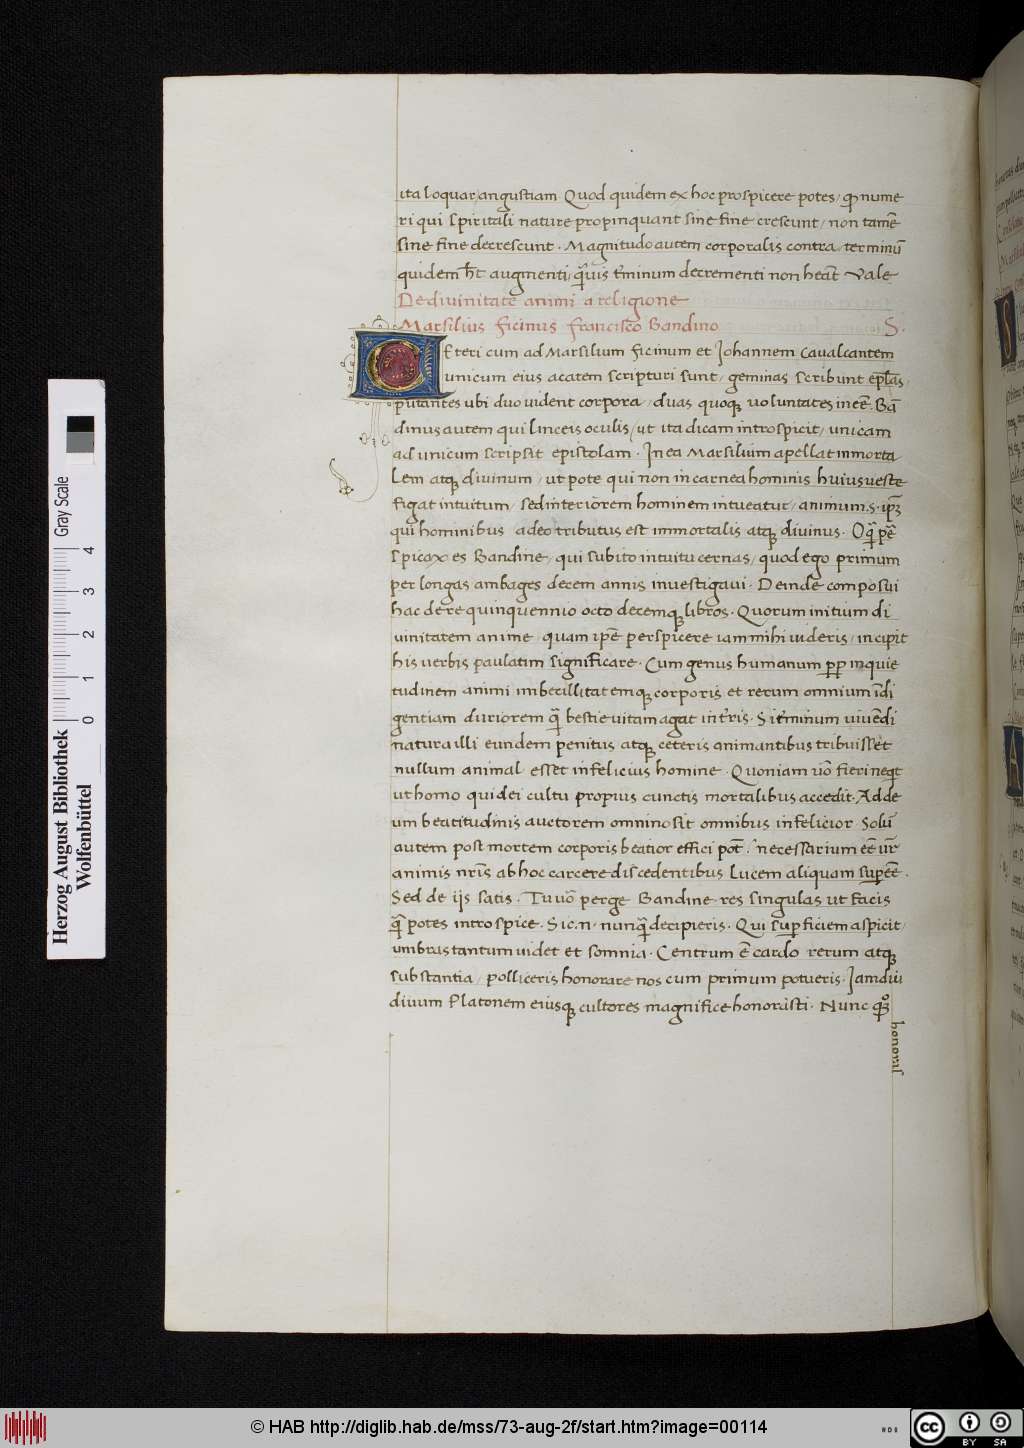 ita loquar angustiam Quod quidem ex hoc prospicere potes / qꝫ nume
ri qui spiritali nature propinquant sine fine crescunt / non tamē
sine fine decrescunt · Magnitudo autem corporalis contra / terminū
quidem augmenti / q̄uis decrementi non Vale
De divinitate animi a religione
Marsilius ficinus francisco Bandino S.
Ceteri cum ad Marsilium ficinum et Johannem Cavalcantem
unicum eius acatem scripturi sunt / geminas scribunt epl̄as
putantes ubi duo vident corpora / duas quoqꝫ voluntates ineē · Bā
dinus autem qui linceis oculis / ut ita dicam introspicit / unicam
ad unicum scripsit epistolam · In ea Marsilium apellat inmorta
lem atqꝫ divinum / ut pote qui non in carnea hominis huius veste
figat intuitum / sed interiorem hominem intueatur / animum ·s· ipꝫ
qui hominibus adeo tributus est immortalis atqꝫ divinus · O q̄ pē
spicax es Bandine / qui subito intuitu cernas / quod ego primum
per longas ambages decem annis investigavi · Deinde composui
hac de re quinquennio octo decemqꝫ libros · Quorum initium di
vinitatem anime / quam ip̄e perspicere iam mihi videris / incipit
his verbis paulatim significare · Cum genus humanum pp̄ inquie
tudinem animi imbecillitatemqꝫ corporis et rerum omnium īdi
gentiam duriorem q̄ bestie vitam agat in tr̄is · Si t̄minum vivēdi
natura illi eundem penitus atqꝫ ceteris animantibus tribuisset
nullum animal esset infelicius homine · Quoniam vō fieri neqt
ut homo qui dei cultu propius cunctis mortalibus accedit · Adde
um beatitudinis auctorem omnino sit omnibus infelicior Solū
autem post mortem corporis beatior effici pōt · necessarium eē vr̄
animis nr̄is ab hoc carcere discedentibus lucem aliquam supeē ·
Sed de iis satis · Tu vō perge Bandine res singulas ut facis
q̄ potes introspice · Sic ·n· nunq̄ decipieris · Qui supficiem aspicit /
umbras tantum videt et somnia · Centrum ē cardo rerum atqꝫ
substantia / polliceris honorare nos cum primum potueris · Iamdiu
divum Platonem eiusqꝫ cultores magnifice honorasti · Nunc qꝫ
honoras
Herzog August Bibliothek
Wolfenbüttel
0 1 2 3 4 Gray Scale
© HAB http://diglib.hab.de/mss/73-aug-2f/start.htm?image=00114
cc BY SA